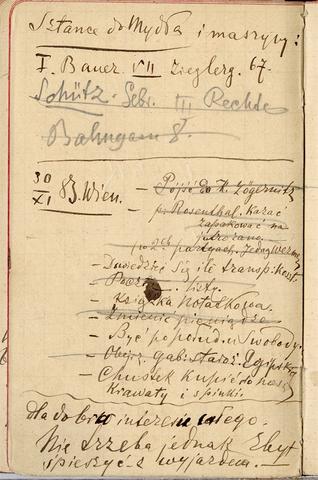 Sztance do Mydła i maszyny:
I. Bauer VII Zieglerg. 67.
Schütz. Gebr. III Rechte
Bahngasse 8.
30/XI 83. Wien. – Pójść do K. Zögernitz
p. Rosenthal. kazać
zapakować na
jutro rano
po partyach. jedną wezmę
– Dowiedzieć się ile transp. koszt.
– listy.
– Książka Notatkowa.
– Zmienić pieniądze
– Być po połud. u Swobody.
– Obejrz. gab. staroż. Egipski
– Chustek kupić do nosa
Krawaty i spinki.
dla dobra interesu całego.
Nie trzeba jednak zbyt
śpieszyć z wyjazdem. –